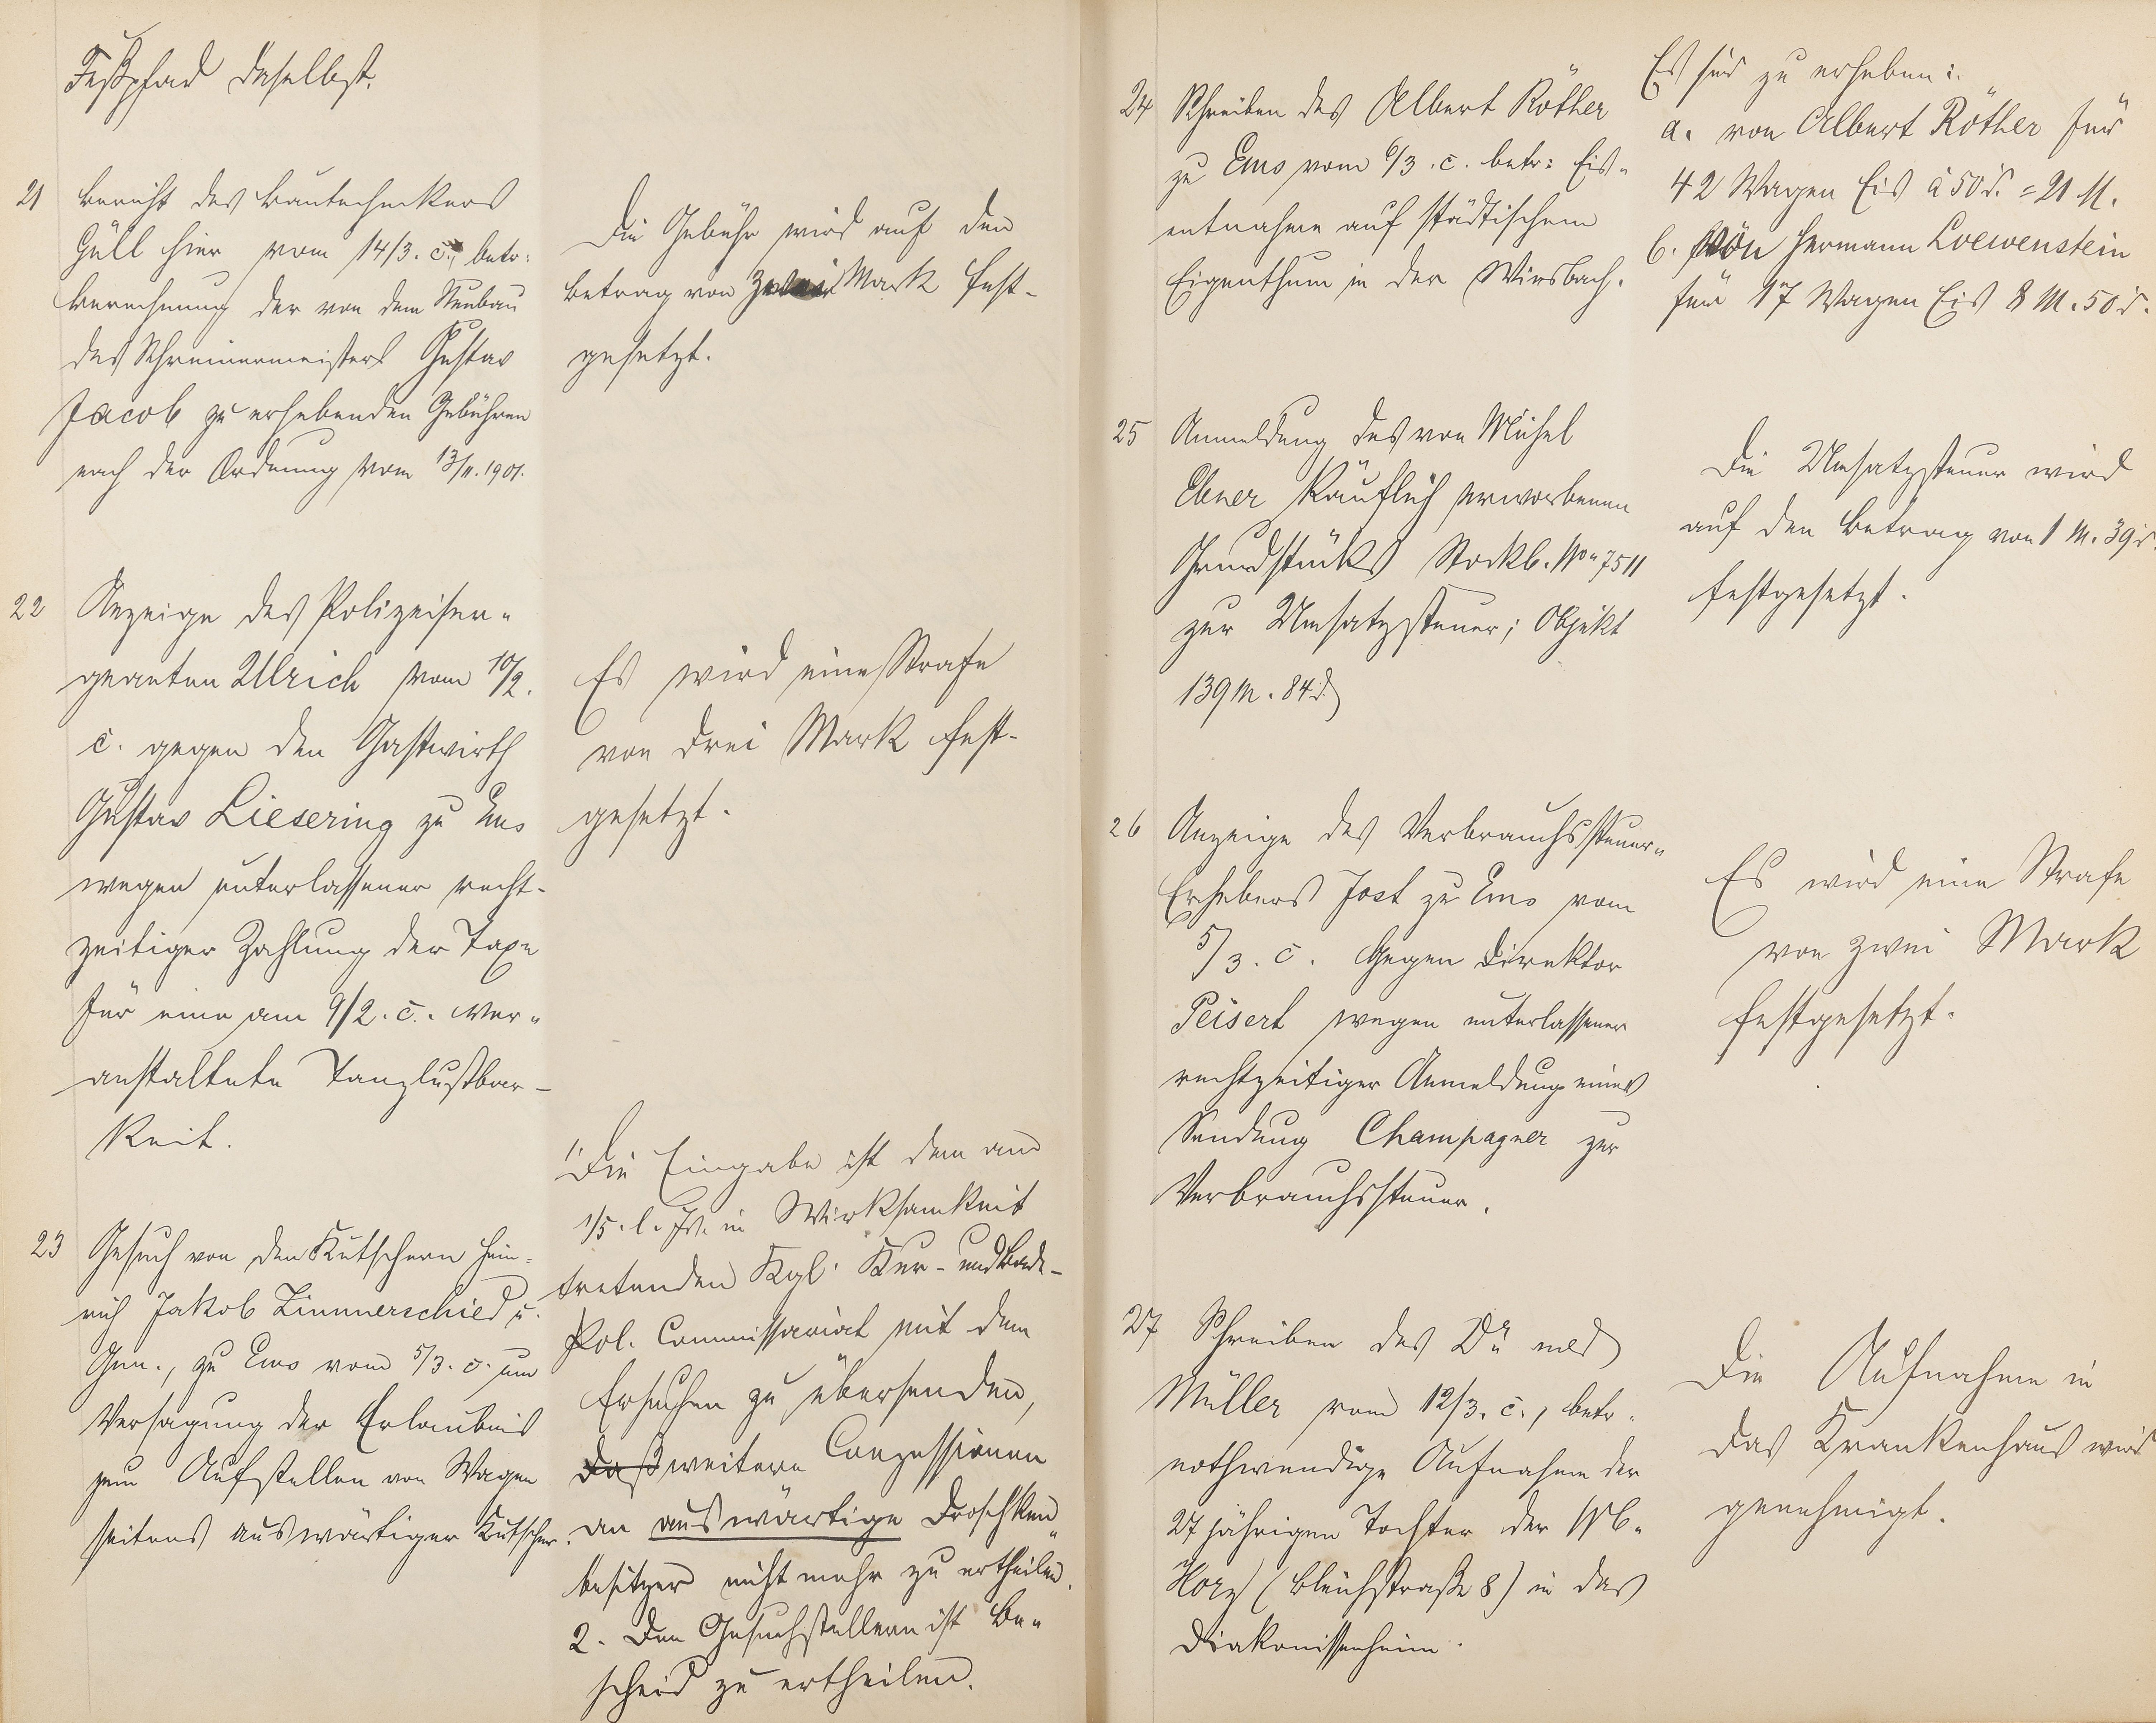 Fußpfad daselbst.
21 Bericht des Bautechnikers
Güll hier vom 14/3. c., betr.
Berechnung der von dem Neubau
des Schreinermeisters Gustav
Jacob zu erhebenden Gebühren
nach der Ordnung vom 13/11. 1901.
Die Gebühr wird auf den
Betrag von Mark fest-
gesetzt.
22 Anzeige des Polizeiser-
geanten Ulrich vom 10/2.
c. gegen den Gastwirth
Gustav Liesering zu Ems
wegen unterlassener recht-
zeitiger Zahlung der Taxe
für eine am 9/2. c. ver-
anstaltete Tanzlustbar-
keit.
Es wird eine Strafe
von drei Mark fest-
gesetzt.
23 Gesuch von den Kutschern Hein-
rich Jakob Zimmerschied u.
Gen., zu Ems vom 5/3. c. um
Versagung der Erlaubniß
zum Aufstellen von Wagen
seitens auswärtiger Kutscher.
1. Die Eingabe ist dem am
1/5. l. Js. in Wirksamkeit
tretenden Kgl. Kur- und Bade-
Pol. Commissariat mit dem
Ersuchen zu übersenden,
daß weitere Conzessionen
an auswärtige Droschken-
besitzer nicht mehr zu ertheilen.
2. Den Gesuchstellern ist Be-
scheid zu ertheilen.
24 Schreiben des Albert Röther
zu Ems vom 6/3. c. betr: Eis-
entnahme auf städtischem
Eigenthum in der Wirsbach.
Es sind zu erheben:
a. von Albert Röther für
42 Wagen Eis à 50 d. = 21 M.
b. von Hermann Loewenstein
für 17 Wagen Eis 8 M. 50 d.
25 Anmeldung des von Michel
Ebner käuflich erworbenen
Grundstücks Stockb. No 7511
zur Umsatzsteuer; Objekt
139 M. 84 d.
Die Umsatzsteuer wird
auf den Betrag von 1 M. 39 d.
festgesetzt.
26 Anzeige des Verbrauchssteuer-
Erhebers Jost zu Ems vom
5/3. c. gegen Direktor
Peisert wegen unterlassener
rechtzeitiger Anmeldung einer
Sendung Champagner zur
Verbrauchssteuer.
Es wird eine Strafe
von zwei Mark
festgesetzt.
27 Schreiben des Dr. med
Müller vom 12/3. c., betr.
nothwendige Aufnahme der
27 jährigen Tochter der Wb.
(Bleichstraße 8) in das
Diakonissenheim.
Die Aufnahme in
das Krankenhaus wird
genehmigt.